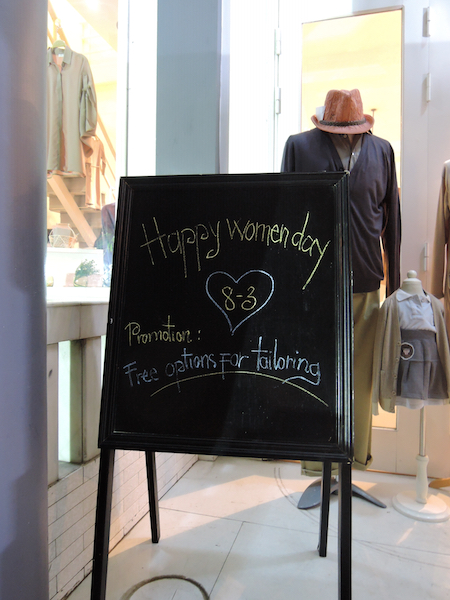 Happy women day
8-3
Promotion:
Free options for tailoring